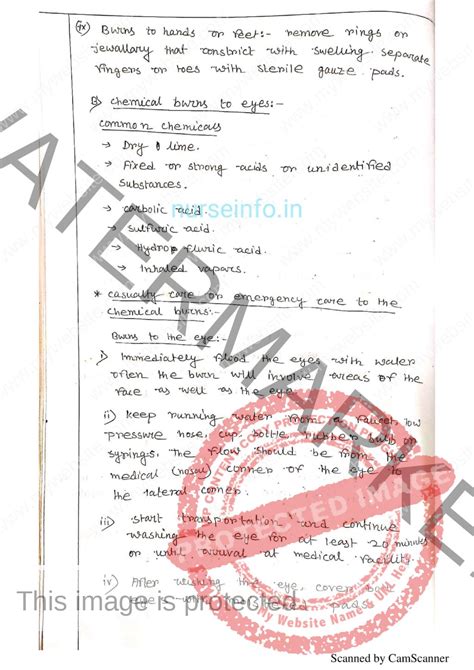 (ix) Burns to hands or feet:- remove rings or
jewallary that constrict with swelling. separate
fingers or toes with sterile gauze pads.
B) chemical burns to eyes:-
common chemicals
→ Dry lime.
→ Fixed or strong acids or unidentified
substances.
nurseinfo.in
→ carbolic acid.
→ sulfuric acid.
→ Hydro fluric acid.
→ Inhaled vapors.
* casualty care or emergency care to the
chemical burns:-
Burns to the eye:-
i) Immediately flood the eyes with water
often the burn will involve areas of the
face as well as the eye
ii) keep running water from a faucet, low
pressure hose, cup, bottle rubber bulb or
syringe. the flow should be from the
medical (nasal) corner of the eye to
the lateral corner.
iii) start transportation and continue
washing the eye for at least 20 minutes
or until arrival at medical facility.
iv) After wishing the eye, cover both
eyes with pads.
WATERMARKED
PROTECTED IMAGE
This image is protected
Scanned by CamScanner